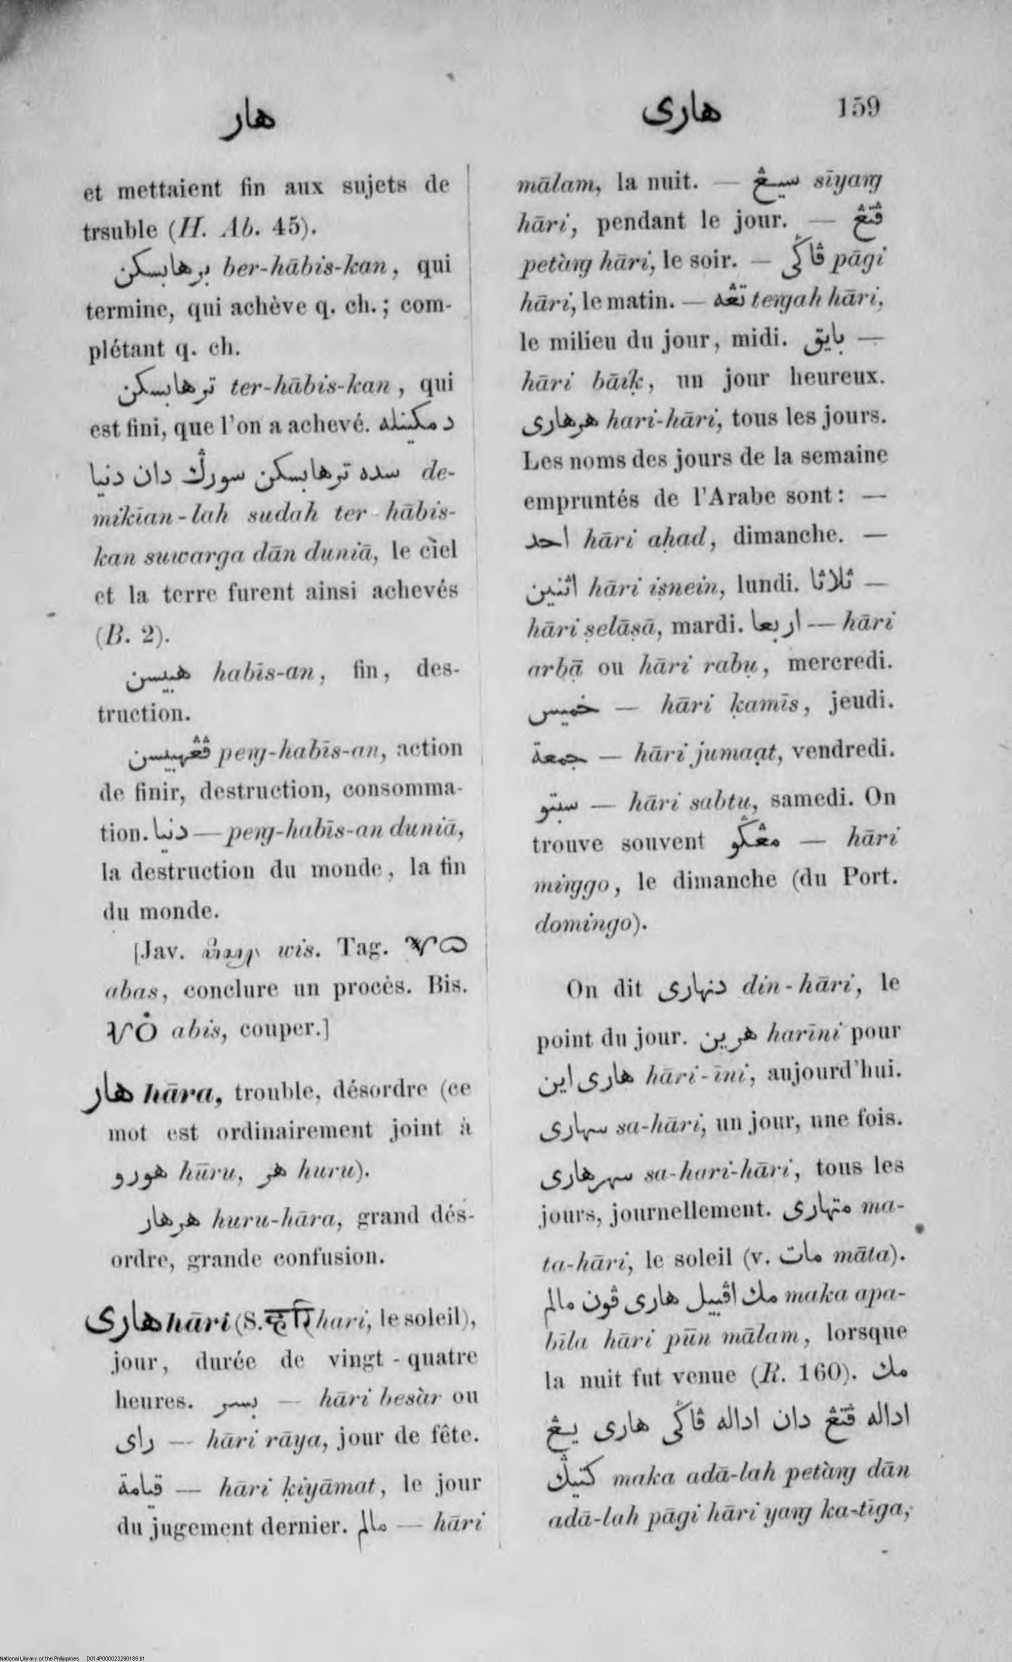 هار
هارى 159
et mettaient fin aux sujets de
trsuble (H. Ab. 45).
برهابسكن ber-hābis-kan, qui
termine, qui achève q. ch.; com-
plétant q. ch.
ترهابسكن ter-hābis-kan, qui
est fini, que l'on a achevé. دمكينله
سده ترهابسكن سورݢ دان دنيا de-
mikīan-lah sudah ter-hābis-
kan suwarga dān duniā, le ciel
et la terre furent ainsi achevés
(B. 2).
هبيسن habīs-an, fin, des-
truction.
ڤڠهبيسن peng-habīs-an, action
de finir, destruction, consomma-
tion. دنيا — peng-habīs-an duniā,
la destruction du monde, la fin
du monde.
[Jav. wis. Tag.
abas, conclure un procès. Bis.
abis, couper.]
هار hāra, trouble, désordre (ce
mot est ordinairement joint à
هورو hūru, هر huru).
هرهار huru-hāra, grand dés-
ordre, grande confusion.
هارى hāri (S. हरि hari, le soleil),
jour, durée de vingt-quatre
heures. بسر — hāri besàr ou
راى — hāri rāya, jour de fête.
قيامة — hāri ḳiyāmat, le jour
du jugement dernier. مالم — hāri
mālam, la nuit. — سيڠ sīyang
hāri, pendant le jour. — ڤتڠ
petàng hāri, le soir. — ڤاݢى pāgi
hāri, le matin. — تڠه tengah hāri,
le milieu du jour, midi. بايق —
hāri bāiḳ, un jour heureux.
هرهارى hari-hāri, tous les jours.
Les noms des jours de la semaine
empruntés de l'Arabe sont: —
احد hāri aḥad, dimanche. —
اثنين hāri iṣnein, lundi. ثلاثا —
hāri ṣelāṣā, mardi. اربعا — hāri
arbạ̄ ou hāri rabụ, mercredi.
خميس — hāri ḳamīs, jeudi.
جمعة — hāri jumaạt, vendredi.
سبتو — hāri sabtu, samedi. On
trouve souvent مڠݢو — hāri
minggo, le dimanche (du Port.
domingo).
On dit دنهارى din-hāri, le
point du jour. هرين harīni pour
هارى اين hāri-īni, aujourd'hui.
سهارى sa-hāri, un jour, une fois.
سهرهارى sa-hari-hāri, tous les
jours, journellement. متهارى ma-
ta-hāri, le soleil (v. مات māta).
مك اڤبيل هارى ڤون مالم maka apa-
bīla hāri pūn mālam, lorsque
la nuit fut venue (R. 160). مك
اداله ڤتڠ دان اداله ڤاݢى هارى يڠ
كتيݢ maka adā-lah petàng dān
adā-lah pāgi hāri yang ka-tīga,
National Library of the Philippines